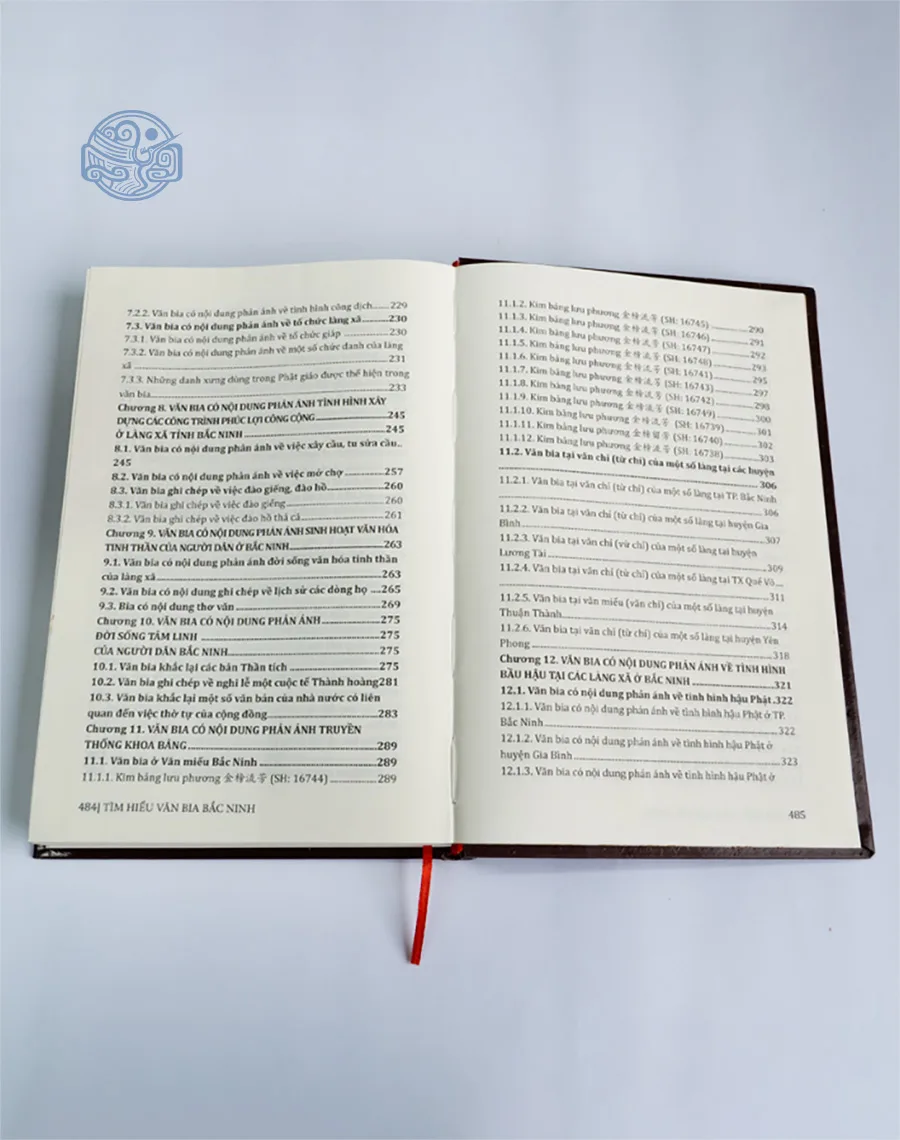 7.2.2. Văn bia có nội dung phản ánh về tình hình công dịch......229
7.3. Văn bia có nội dung phản ánh về tổ chức làng xã..........230
7.3.1. Văn bia có nội dung phản ánh về tổ chức giáp ..................230
7.3.2. Văn bia có nội dung phản ánh về một số chức danh của làng
xã ..................231
7.3.3. Những danh xưng dùng trong Phật giáo được thể hiện trong
văn bia..................233
Chương 8. VĂN BIA CÓ NỘI DUNG PHẢN ÁNH TÌNH HÌNH XÂY
DỰNG CÁC CÔNG TRÌNH PHÚC LỢI CÔNG CỘNG ..................245
Ở LÀNG XÃ TỈNH BẮC NINH ..................245
8.1. Văn bia có nội dung phản ánh về việc xây cầu, tu sửa cầu..
245
8.2. Văn bia có nội dung phản ánh về việc mở chợ ..................257
8.3. Văn bia ghi chép về việc đào giếng, đào hồ..................260
8.3.1. Văn bia ghi chép về việc đào giếng..................260
8.3.2. Văn bia ghi chép về việc đào hồ thả cá ..................261
Chương 9. VĂN BIA CÓ NỘI DUNG PHẢN ÁNH SINH HOẠT VĂN HÓA
TINH THẦN CỦA NGƯỜI DÂN Ở BẮC NINH..................263
9.1. Văn bia có nội dung phản ánh đời sống văn hóa tinh thần
của làng xã ..................263
9.2. Văn bia có nội dung ghi chép về lịch sử các dòng họ ....265
9.3. Bia có nội dung thơ văn ..................269
Chương 10. VĂN BIA CÓ NỘI DUNG PHẢN ÁNH..................275
ĐỜI SỐNG TÂM LINH ..................275
CỦA NGƯỜI DÂN BẮC NINH..................275
10.1. Văn bia khắc lại các bản Thần tích ..................275
10.2. Văn bia ghi chép về nghi lễ một cuộc tế Thành hoàng281
10.3. Văn bia khắc lại một số văn bản của nhà nước có liên
quan đến việc thờ tự của cộng đồng..................283
Chương 11. VĂN BIA CÓ NỘI DUNG PHẢN ÁNH TRUYỀN
THỐNG KHOA BẢNG ..................289
11.1. Văn bia ở Văn miếu Bắc Ninh ..................289
11.1.1. Kim bảng lưu phương 金榜流芳 (SH: 16744) ..................289
484| TÌM HIỂU VĂN BIA BẮC NINH
11.1.2. Kim bảng lưu phương 金榜流芳 (SH: 16745) ..................290
11.1.3. Kim bảng lưu phương 金榜流芳 (SH: 16746) ..................291
11.1.4. Kim bảng lưu phương 金榜流芳 (SH: 16747) ..................292
11.1.5. Kim bảng lưu phương 金榜流芳 (SH: 16748) ..................293
11.1.6. Kim bảng lưu phương 金榜流芳 (SH: 16741) ..................295
11.1.7. Kim bảng lưu phương 金榜流芳 (SH: 16743) ..................297
11.1.8. Kim bảng lưu phương 金榜流芳 (SH: 16742) ..................298
11.1.9. Kim bảng lưu phương 金榜流芳 (SH: 16749) ..................300
11.1.10. Kim bảng lưu phương 金榜流芳 (SH: 16739) ..................301
11.1.11. Kim bảng lưu phương 金榜留芳 (SH: 16740) ..................302
11.1.12. Kim bảng lưu phương 金榜流芳 (SH: 16738) ..................303
11.2. Văn bia tại văn chỉ (từ chỉ) của một số làng tại các huyện
..................306
11.2.1. Văn bia tại văn chỉ (từ chỉ) của một số làng tại TP. Bắc Ninh
..................306
11.2.2. Văn bia tại văn chỉ (từ chỉ) của một số làng tại huyện Gia
Bình..................307
11.2.3. Văn bia tại văn chỉ (từ chỉ) của một số làng tai huyện
Lương Tài ..................309
11.2.4. Văn bia tại văn chỉ (từ chỉ) của một số làng tai TX Quế Võ ...
..................311
11.2.5. Văn bia tại văn miếu (văn chỉ) của một số làng tại huyện
Thuận Thành..................314
11.2.6. Văn bia tại văn chỉ (từ chỉ) của một số làng tại huyện Yên
Phong..................318
Chương 12. VĂN BIA CÓ NỘI DUNG PHẢN ÁNH VỀ TÌNH HÌNH
BẦU HẬU TẠI CÁC LÀNG XÃ Ở BẮC NINH ..................321
12.1. Văn bia có nội dung phản ánh về tình hình hậu Phật.322
12.1.1. Văn bia có nội dung phản ánh về tình hình hậu Phật ở TP.
Bắc Ninh ..................322
12.1.2. Văn bia có nội dung phản ánh về tình hình hậu Phật ở
huyện Gia Bình..................323
12.1.3. Văn bia có nội dung phản ánh về tình hình hậu Phật ở
485